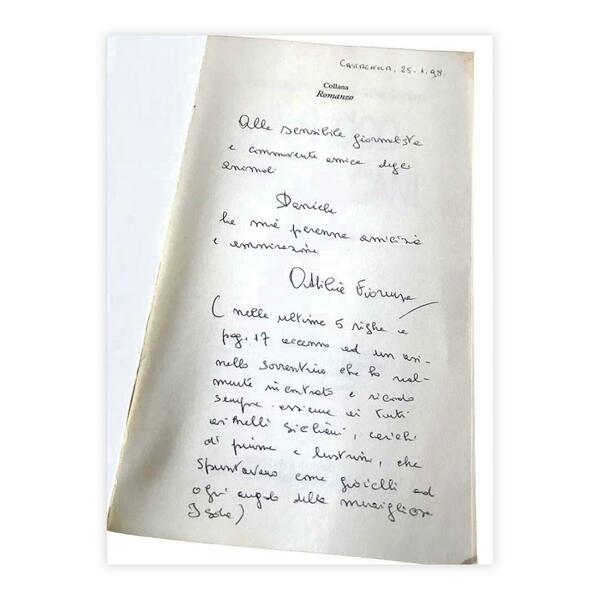 Castagnola, 25.1.98.
Collana
Romanzo
Alla sensibile giornalista
e commovente amica degli
animali
Daniela
la mia perenne amicizia
e ammirazione
Attilia Fiorenza
(nelle ultime 5 righe a
pag. 17 accenno ad un asi-
nello sorrentino che ho real-
mente incontrato e ricordo
sempre assieme ai tutti
asinelli siciliani, carichi
di piume e lustrini, che
spuntavano come gioielli ad
ogni angolo della meravigliosa
Isola)